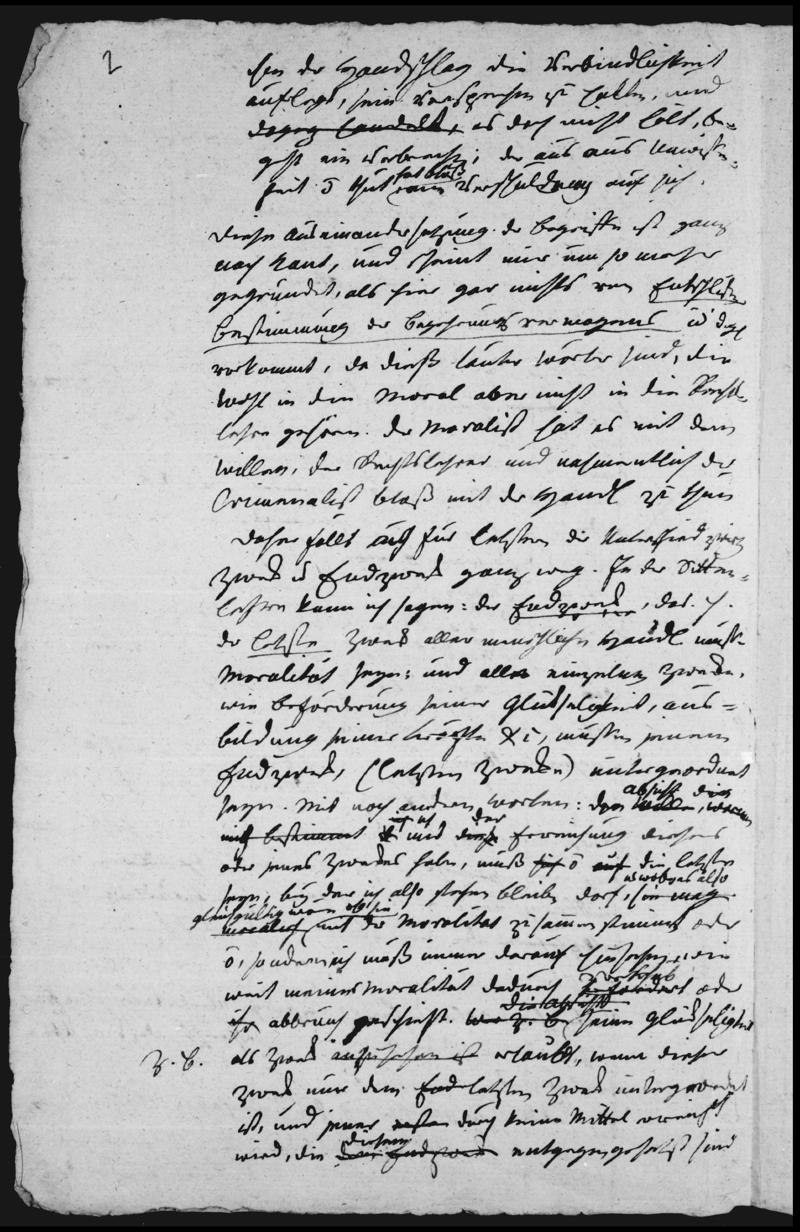 2
hen der Handschlag die Verbindlichkeit
auflegt, sein Versprechen zu halten, und
dageg handelt, es doch nicht hält, be-
geht ein Verbrech; der aus Unwissen-
heit ō thut hat bloß eine Verschuldung auf sich.
Diese Auseinandersetzung der Begriffe ist ganz
nach Kant, und scheint mir um so mehr
gegründet, als hier gar nichts von
Bestimmung des Begehrungsvermögens u dgl
vorkommt, da dieß lauter Wörter sind, die
wohl in die Moral aber nicht in die Rechts-
lehre gehören. Der Moralist hat es mit dem
Willen, der Rechtslehrer und nahmentlich der
Criminalist bloß mit der Handl zu thun
Daher fällt auch für letztern der Unterschied zwisch
Zwek u Endzwek ganz weg. In der Sitten-
lehre kann ich sagen: der Endzwek, das. h.
der letzte Zwek aller menschlichen Handl muß
Moralität seyn: und alle einzelnen Zweke,
wie Beförderung seiner Glükseligkeit, Aus-
bildung seiner Kräfte &c, müssen jenem
Endzwek, (letzten Zweke) untergeordnet
seyn. Mit noch andern Worten: die Absicht, warum
mich bestimmt ich und der Erreichung dieses
oder jenes Zwekes habe, muß ō die letzte
seyn, bey der ich also stehen bleiben darf, wobey es also
gleichgültig wäre ob sie mit der Moralität zusammenstimmt oder
ō, sondern ich muß immer darauf hinsehen, wie
weit meiner Moralität dadurch Vorschub oder
Abbruch geschieht. die Absicht seine Glükseligkeit
z. B. als Zwek anzusehen ist erlaubt, wenn dieser
Zwek nur dem letzten Zwek untergeordnet
ist, und jener durch keine Mittel erreicht
wird, die diesem Endzwek entgegengesetzt sind